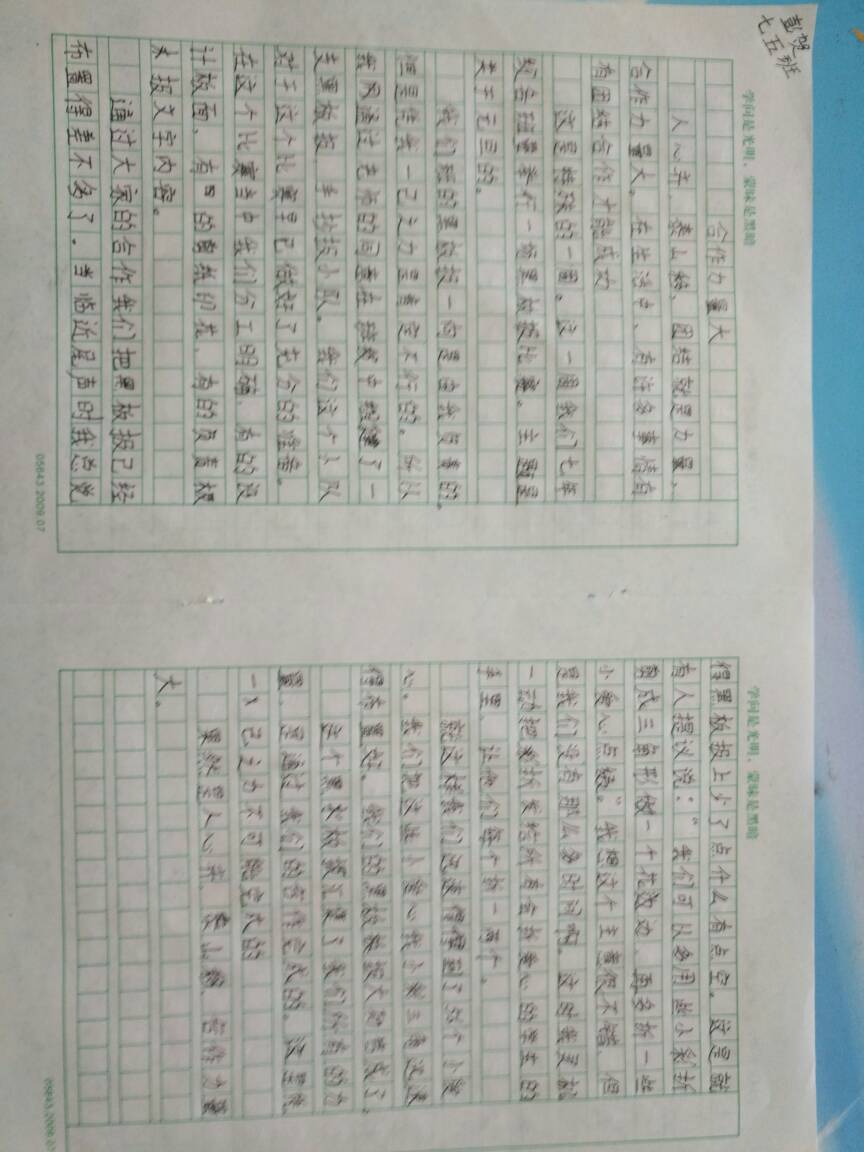 彭贺
七五班
学问是光明，蒙昧是黑暗
合作力量大
人心齐，泰山移，团结就是力量，
合作力量大。在生活中，有许多事情有
有团结合作才能成功
这是热烈的一周。这一周我们七年
级各班举行一场黑板报比赛。主题是
关于元旦的。
我们班的黑板报一向是由我负责的。
但是凭我一己之力是完不行的。所以
我通过老师的同意在班级中组建了一
支黑板报手抄报小队。我们这个小队
对于这个比赛早已做好了充分的准备。
在这个比赛当中我们分工明确，有的设
计版面，有的剪纸印花，有的负责板
报文字内容。
通过大家的合作我们把黑板报已经
布置得差不多了。当临近尾声时我总觉
05643.2009.07
学问是光明，蒙昧是黑暗
得黑板报上少了点什么有点空。这是就
有人提议说：“我们可以多用些小彩折
成三角形做一个花边，再多折一些
小爱心点缀。”我想这个主意很不错，但
是我们没有那么多时间啊。这时我灵机
一动把彩折发给所有会折爱心的学生的
手里，让他们每个折一两个。
就这样我们得到了个小爱
心。我们把这些小爱心
得布置好。我们的黑板报大功告成了。
这个黑板报汇聚了我们所有的力
量，是通过我们的合作完成的。这是凭
一人己之力不可能完成的
果然是人心齐，泰山移，合作力量
大。
05643.2009.07